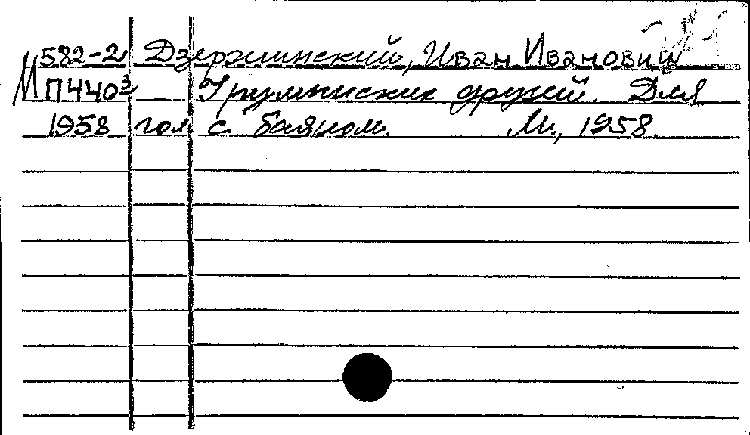 582-2 Дзержинский, Иван Иванович
М П440³ Грузинских друзей. Для
1958 гол. с баяном. М., 1958